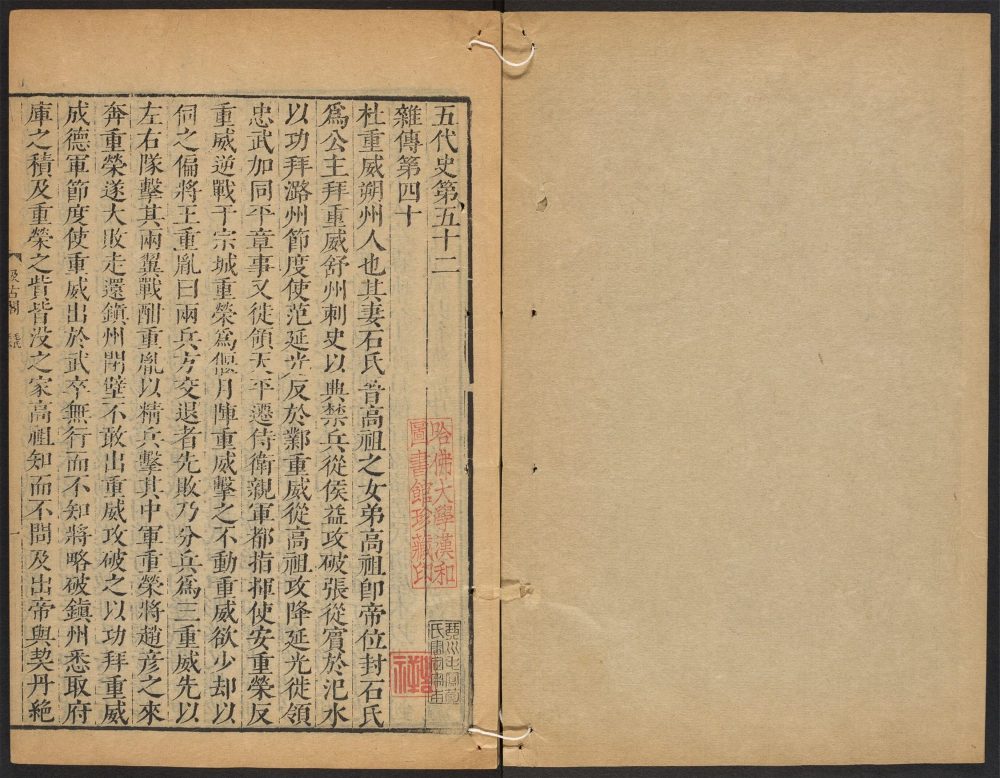 五代史第五十二
雜傳第四十
杜重威朔州人也其妻石氏晉高祖之女弟高祖卽帝位封石氏
爲公主拜重威舒州刺史以典禁兵從侯益攻破張從賓於汜水
以功拜潞州節度使范延光反於鄴重威從高祖攻降延光徙領
忠武加同平章事又徙領天平遷侍衛親軍都指揮使安重榮反
重威逆戰于宗城重榮爲偃月陣重威擊之不動重威欲少却以
伺之偏將王重胤曰兩兵方交退者先敗乃分兵爲三重威先以
左右隊擊其兩翼戰酣重胤以精兵擊其中軍重榮將趙彥之來
奔重榮遂大敗走還鎮州閉壁不敢出重威攻破之以功拜重威
成德軍節度使重威出於武卒無行而不知將略破鎮州悉取府
庫之積及重榮之貲皆没之家高祖知而不問及出帝與契丹絶
汲古閣
一
哈佛大學漢和
圖書館珍藏印